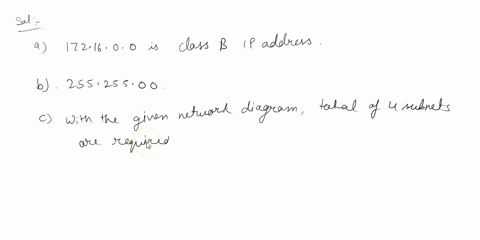 Sol:-
a) 172.16.0.0 is class B IP address.
b). 255.255.00.
c) With the given network diagram, total of 4 subnets
are required